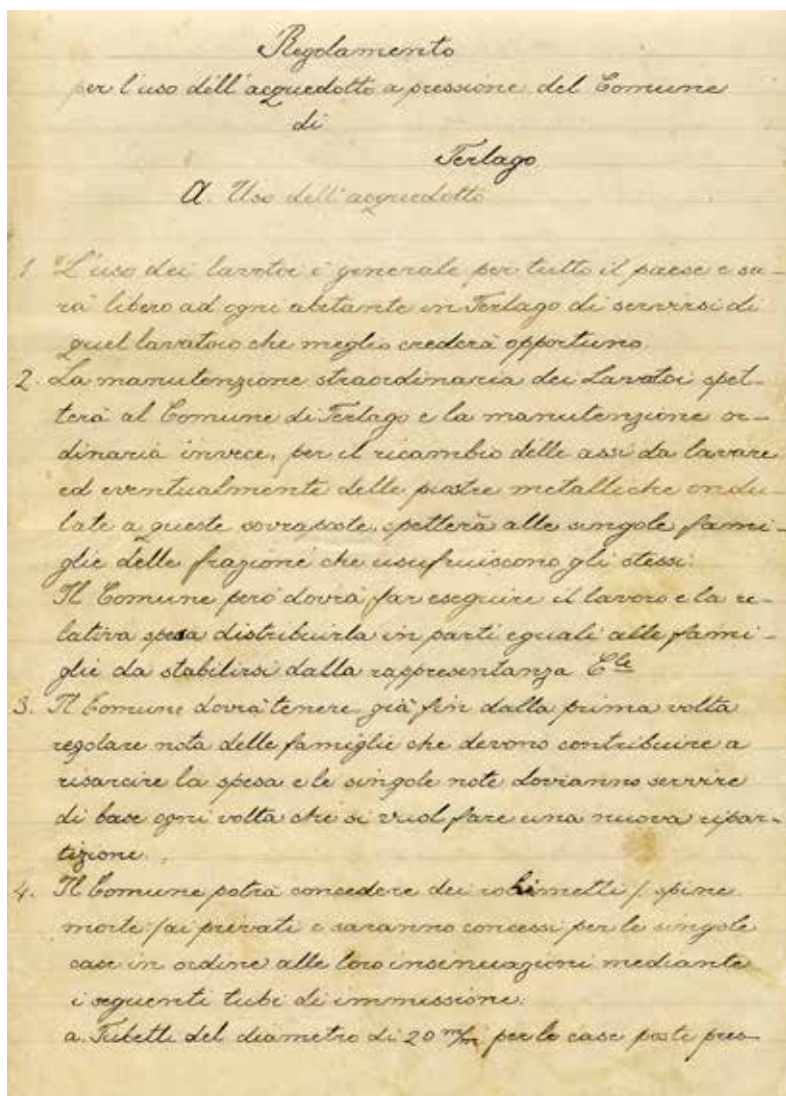 Regolamento
per l'uso dell'acquedotto a pressione del Comune
di
Terlago
A. Uso dell'acquedotto
1. L'uso dei lavatoi è generale per tutto il paese e sa-
rà libero ad ogni abitante in Terlago di servirsi di
quel lavatoio che meglio crederà opportuno.
2. La manutenzione straordinaria dei Lavatoi spet-
terà al Comune di Terlago e la manutenzione or-
dinaria invece, per il ricambio delle assi da lavare
ed eventualmente delle piastre metalliche ondu-
late a queste sovraposte, spetterà alle singole fami-
glie delle frazione che usufruiscono gli stessi.
Il Comune però dovrà far eseguire il lavoro e la re-
lativa spesa distribuirla in parti eguali alle fami-
glie da stabilirsi dalla rappresentanza Cle
3. Il Comune dovrà tenere già fin dalla prima volta
regolare nota delle famiglie che devono contribuire a
risarcire la spesa e le singole note dovranno servire
di base ogni volta che si vuol fare una nuova ripar-
tizione.
4. Il Comune potrà concedere dei robinetti /: spine
morte :/ ai privati e saranno concessi per le singole
case in ordine alle loro insinuazioni mediante
i seguenti tubi di immissione:
a. Tubetti del diametro di 20 m/m per le case poste pres-